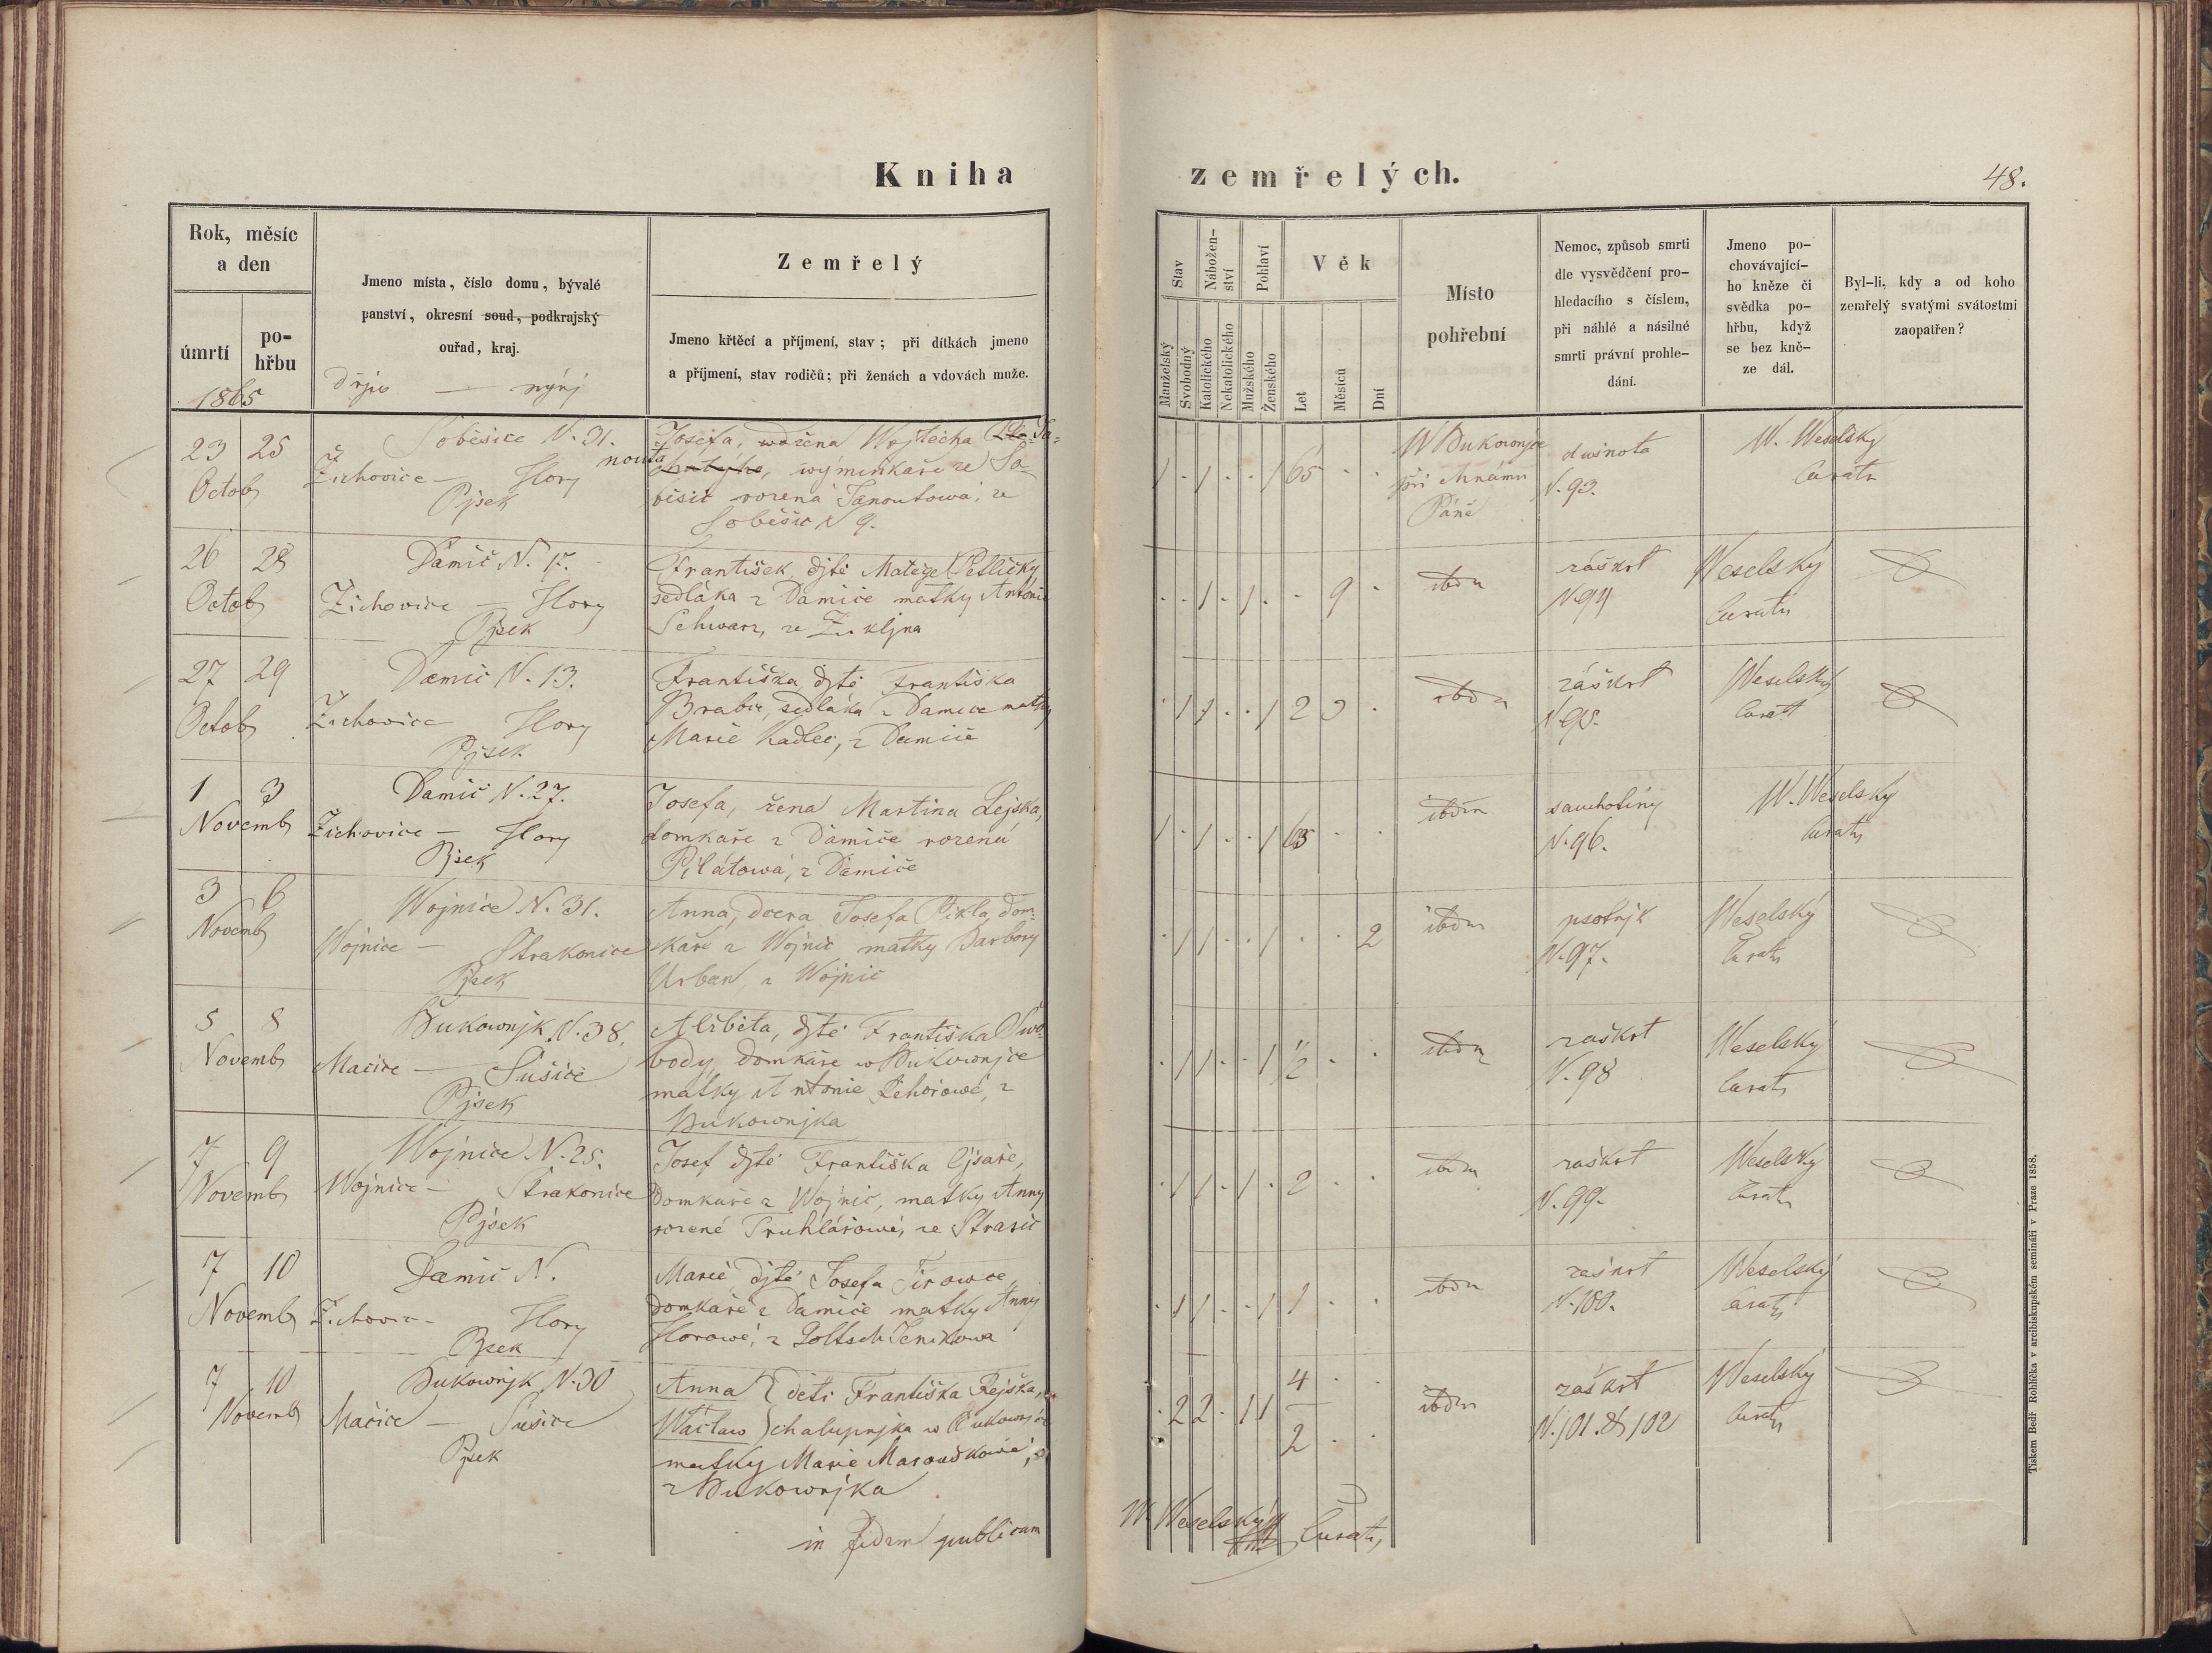 Kniha zemřelých.
48.
Rok, měsíc
a den
úmrtí
po-
hřbu
1865
Jmeno místa, číslo domu, bývalé
panství, okresní soud, podkrajský
ouřad, kraj.
dřjw — nynj
Zemřelý
Jmeno křtěcí a příjmení, stav; při dítkách jmeno
a příjmení, stav rodičů; při ženách a vdovách muže.
Stav
Manželský
Svobodný
Nábožen-
ství
Katolického
Nekatolického
Pohlaví
Mužského
Ženského
Věk
Let
Měsíců
Dní
Místo
pohřební
Nemoc, způsob smrti
dle vysvědčení pro-
hledacího s číslem,
při náhlé a násilné
smrti právní prohle-
dání.
Jmeno po-
chovávající-
ho kněze či
svědka po-
hřbu, když
se bez kně-
ze dál.
Byl-li, kdy a od koho
zemřelý svatými svátostmi
zaopatřen?
23 25
Octob
Soběsice N. 31.
Žichovice — Hory
Pjsek
Josefa, wdřena Wojtěcha Ja-
nouta, wýmeňkaře ze So-
běsic rozená Janoutowá, ze
Soběšic N 9.
1 · 1 · · 1 65 · ·
W Bukownjce
při Chrámu
Páně
duśnota
N. 93.
W. Weselsky
Curatu
26 28
Octob
Damič N. 17.
Žichovice — Hory
Pjsek
František, djtě Matěge Petličky
sedláka z Damíče matky Antonie
Schwarz, ze Zukljna
· · 1 · 1 · - 9 ·
ibdm
záškrt
N. 94
Weselský
Curatu
27 29
Octob
Damič N. 13.
Žichovice Hory
Pjsek
Františka, djtě Františka
Brabec, sedláka z Damíce matky
Marie Kadlec, z Damíče
· 1 1 · · 1 2 3 ·
ibdm
záškrt
N 95.
Weselský
Curat
1 3
Novemb
Damič N. 27.
Žichovice — Hory
Pjsek
Josefa, žena Martina Lejska,
domkaře z Damíče rozená
Pilátowá, z Damíče
1 · 1 · · 1 63 · ·
ibdm
sauchotiny
N. 96.
W. Weselsky
Curatu
3 6
Novemb
Wojnice N. 31.
Wojnice — Strakonice
Pjsek
Anna, dcera Josefa Pikla, dom-
kaře z Wojnic matky Barbory
Urban, z Wojnic
· 1 1 · · 1 · · 2
ibdm
psotnjk
N. 97.
Weselský
Curatu
5 8
Novemb
Bukownjk N. 38.
Mačice — Sušice
Pjsek
Alžběta, djtě Františka Swo-
body, domkáře w Bukownjce
matky Antonie Řehořowé, z
Bukownjka
· 1 1 · · 1 1/2 · ·
ibdm
zaškrt
N. 98
Weselský
Curatu
7 9
Novemb
Wojnice N. 25.
Wojnice — Strakonice
Pjsek
Josef djtě Františka Cjsaře,
domkaře z Wojnic, matky Anny
rozené Truhlářowé, ze Strasic
· 1 1 · 1 · 2 · ·
ibdm
zaškrt
N. 99.
Weselský
Curatu
7 10
Novemb
Damič N.
Žichovice — Hory
Pjsek
Marie djtě Josefa
domkaře z Damíče matky Anny
Horowé, z
· 1 1 · · 1 1 · ·
ibdm
zaškrt
N. 100.
Weselský
Curatu
7 10
Novemb
Bukownjk N. 30
Mačice — Sušice
Pjsek
Anna } děti Františka Rejška,
Wáclaw } chalupnjka w Bukownjce
matky Marie Maroudkowé,
z Bukownjka
· 2 2 · 1 1 4 · ·
2 · ·
ibdm
zaškrt
N. 101 & 102
Weselský
Curatu
in fidem publicam
W. Weselský
Curatu
Tiskem Bedř Rohlíčka v arcibiskupském semináři v Praze 1858.